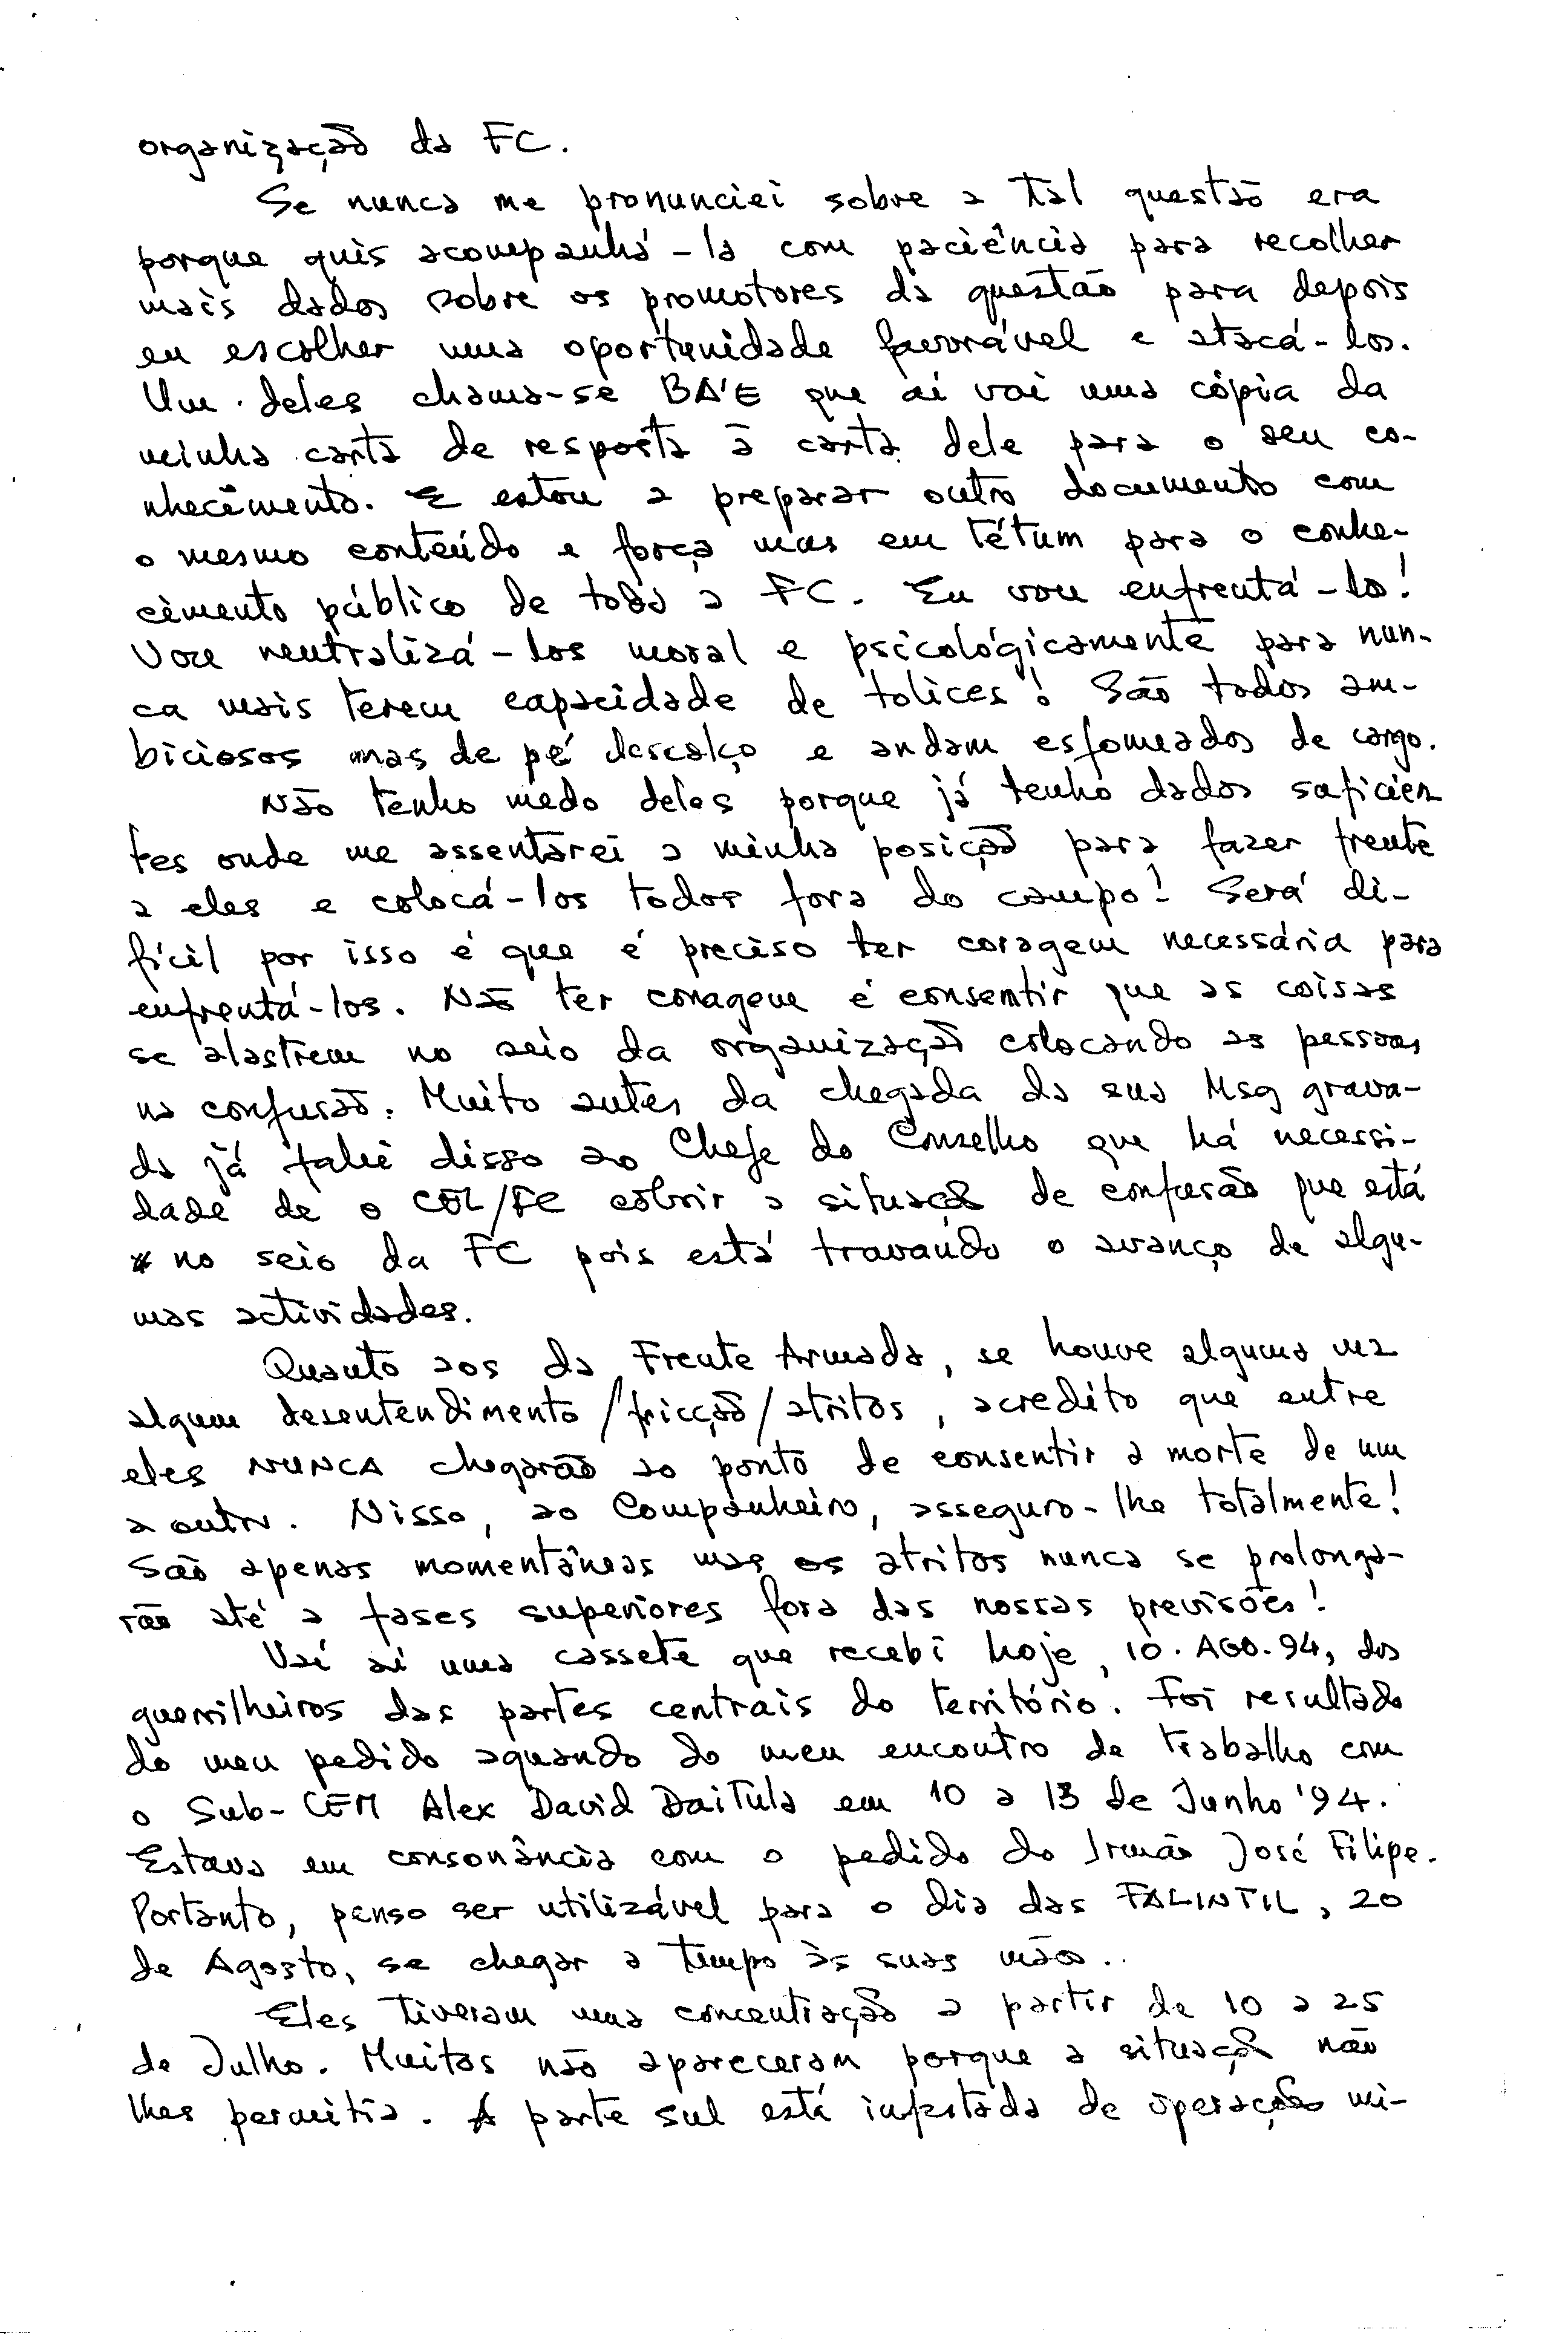 organização da FC.
Se nunca me pronunciei sobre a tal questão era
porque quis acompanhá-la com paciência para recolher
mais dados sobre os promotores da questão para depois
eu escolher uma oportunidade favorável e atacá-los.
Um deles chama-se BA'E que aí vai uma cópia da
minha carta de resposta à carta dele para o seu co-
nhecimento. E estou a preparar outro documento com
o mesmo conteúdo e força mas em tétum para o conhe-
cimento público de toda a FC. Eu vou enfrentá-lo!
Vou neutralizá-los moral e psicológicamente para nun-
ca mais terem capacidade de tolices! São todos am-
biciosos mas de pé descalço e andam esfomeados de cargo.
Não tenho medo deles porque já tenho dados suficien
tes onde me assentarei a minha posição para fazer frente
a eles e colocá-los todos fora do campo! Será di-
fícil por isso é que é preciso ter coragem necessária para
enfrentá-los. Não ter coragem é consentir que as coisas
se alastrem no seio da organização colocando as pessoas
na confusão. Muito antes da chegada da sua Msg grava-
da já falei disso ao Chefe do Conselho que há necessi-
dade de o CEL/FC cobrir a situação de confusão que está
no seio da FC pois está travando o avanço de algu-
mas actividades.
Quanto aos da Frente Armada, se houve alguma vez
algum desentendimento/fricção/atritos, acredito que entre
eles NUNCA chegarão ao ponto de consentir a morte de um
a outro. Nisso, ao Companheiro, asseguro-lhe totalmente!
São apenas momentâneas mas os atritos nunca se prolonga-
rão até a fases superiores fora das nossas previsões!
Vai aí uma cassete que recebi hoje, 10.AGO.94, dos
guerrilheiros das partes centrais do território. Foi resultado
do meu pedido aquando do meu encontro de trabalho com
o Sub-CEM Alex David Daitula em 10 a 13 de Junho '94.
Estava em consonância com o pedido do Irmão José Filipe.
Portanto, penso ser utilizável para o dia das FALINTIL, 20
de Agosto, se chegar a tempo às suas mãos..
Eles tiveram uma concentração a partir de 10 a 25
de Julho. Muitos não apareceram porque a situação não
lhes permitia. A parte sul está infestada de operações mi-